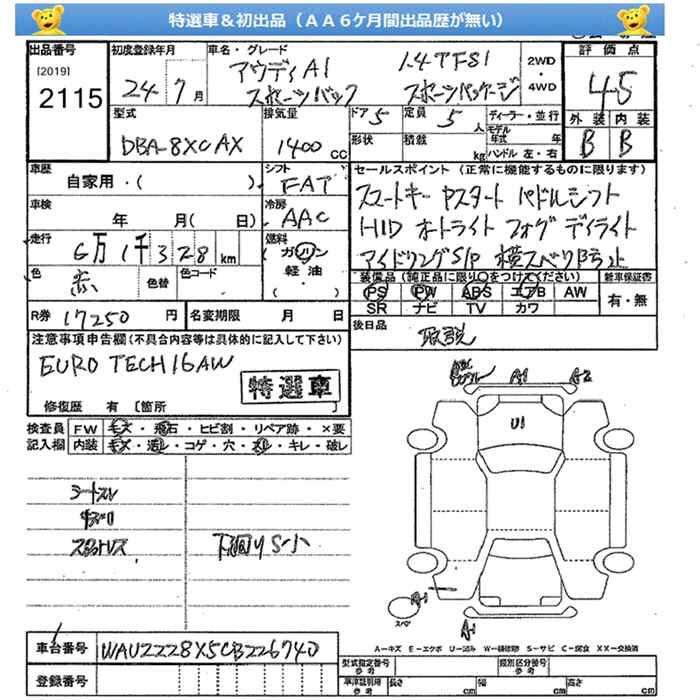 特選車＆初出品（ＡＡ６ケ月間出品歴が無い）
出品番号 初度登録年月 車名・グレード 評価点
[2019]
2115
24年 7月
アウディA1 1.4TFSI 2WD・4WD
スポーツバック スポーツパッケージ
4.5
型式 排気量 ドア 5 定員 5人 ディーラー・並行 外装 内装
DBA-8XCAX 1400 cc 形状 積載 kg モデル年式 年 B B
ハンドル 左・右
車歴 シフト セールスポイント（正常に機能するものに限ります）
自家用・( ) FAT
スマートキー Pスタート パドルシフト
車検 年 月( 日) 冷房 AAC
HID オートライト フォグ デイライト
走行 6万1千328km 燃料 ガソリン
アイドリングS/P 横スベリ防止
軽油・( )
色 赤 色替 色コード
装備品（純正品に限り○をつけてください） 新車保証書
PS PW ABS エアB AW 有・無
SR ナビ TV カワ
R券 17250 円 名変期限 月 日
後日品 取説
注意事項申告欄(不具合内容等は具体的に記入して下さい)
EURO TECH16AW
特選車
修復歴 有 [箇所 ]
検査員 FW キズ・飛石・ヒビ割・リペア跡・×要
記入欄 内装 キズ・汚レ・コゲ・穴・スレ・キレ・破レ
A1 A2
U1
シートスレ
下廻りS小
A1
スペア
A1
A－キズ E－エクボ U－凹み W－補修跡 S－サビ C－腐食 XX－交換済
車台番号 WAUZZZ8X5CB226740
登録番号
型式指定番号 参考 類別区分番号 参考
車体証明用 参考 長さ cm 幅 cm 高さ cm